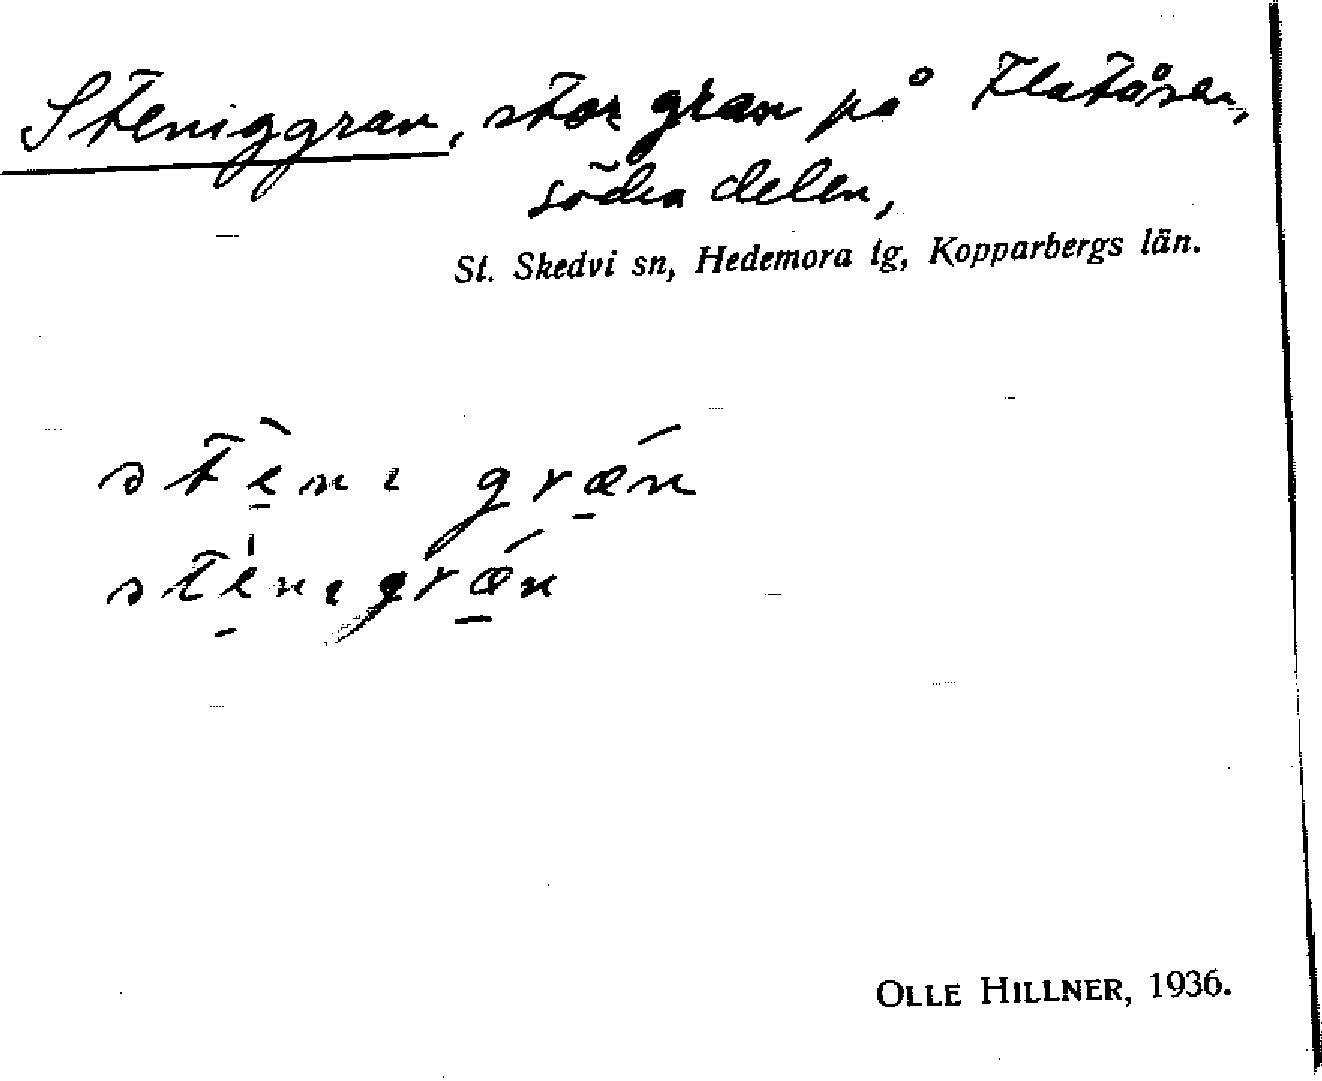 Steniggran, stor gran på Flatåsen,
södra delen,
St. Skedvi sn, Hedemora tg, Kopparbergs län.
stè̱nı grǽ̱n
ste̱̍nıgrǽ̱n
OLLE HILLNER, 1936.